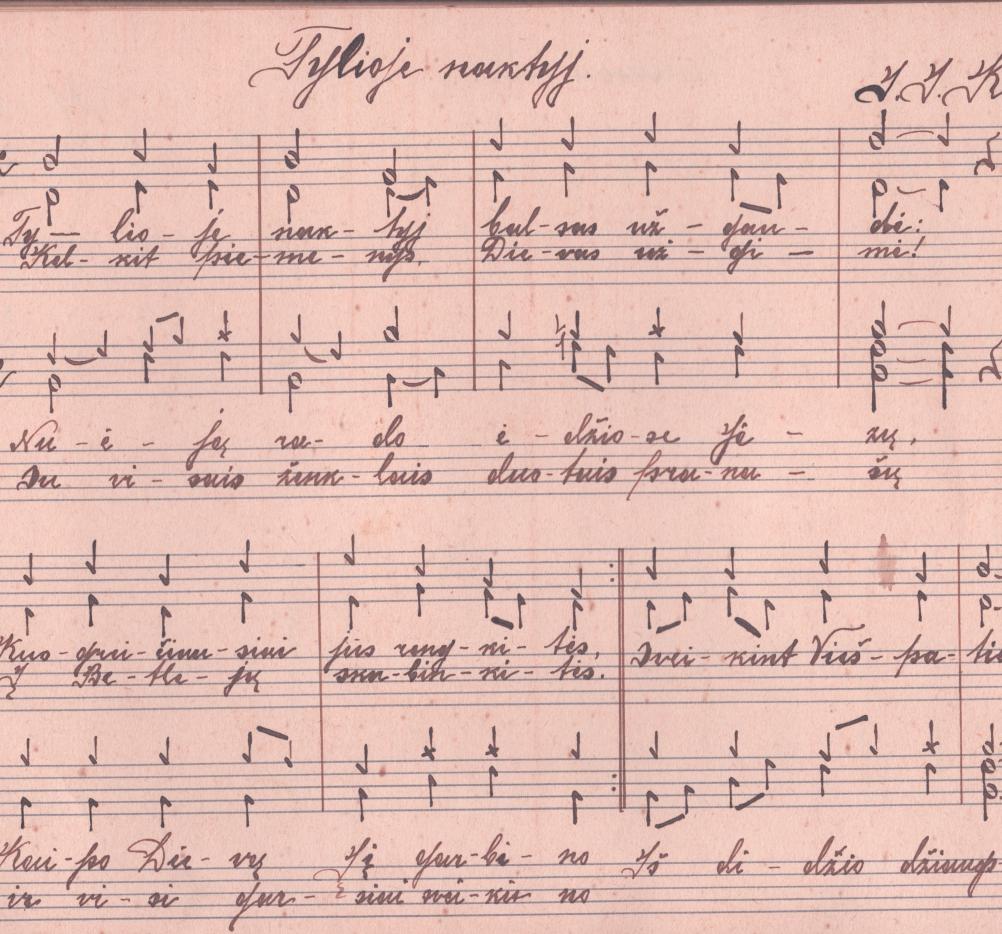 Tylioje naktyj.
J. J. K
Ty — lio - je nak - tyj bal - sas už - gau - dė:
Kel - kit pie - me - nys, Die - vas už - gi — mė!
Nu - ė - ję ra - do ė - džio - se Jė - zų,
Su vi - sais ženk - lais duo - tais pra - na - šų
Kuo - grei - čiau - siai jus reng - ki - tės, Svei - kint Vieš - pa - ties
Į Be - tle - jų sku - bin - ki - tės.
Kai - po Die - vų Jį gar - bi - no Iš di - džio džiaugs
ir vi - si gar - siai svei - kin no